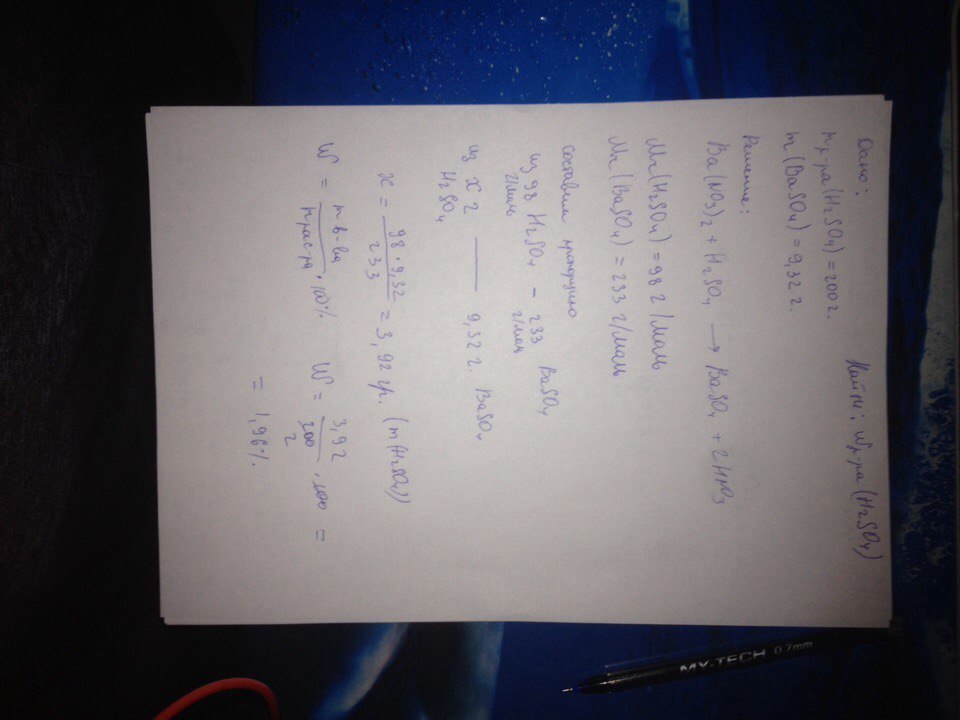 Дано:
mр-ра(H₂SO₄) = 200г.
m(BaSO₄) = 9,32 г.
Найти: Wр-ра(H₂SO₄)
Решение:
Ba(NO₃)₂ + H₂SO₄ → BaSO₄ + 2HNO₃
Mr(H₂SO₄) = 98 г/моль
Mr(BaSO₄) = 233 г/моль
Составим пропорцию
из 98 г/моль H₂SO₄ – 233 г/моль BaSO₄
из x г H₂SO₄ — 9,32 г. BaSO₄
x = 98·9,32 / 233 = 3,92 гр. (m(H₂SO₄))
W = mв-ва / mрас-ра · 100% W = 3,92 / 200 · 100 =
2
= 1,96%
MY-TECH 0.7mm